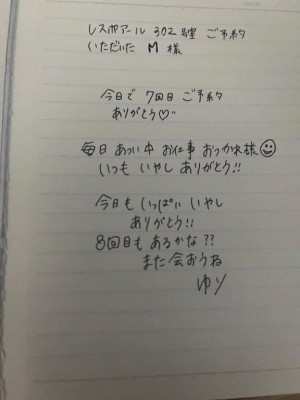 レスポアール 302号室 ご予約
いただいた M 様
今日で 7回目 ご予約
ありがとう♡
毎日 あつい中 お仕事 おつかれ様☺
いつも いやし ありがとう!!
今日も いっぱい いやし
ありがとう!!
8回目も あるかな??
また 会おうね
ゆり